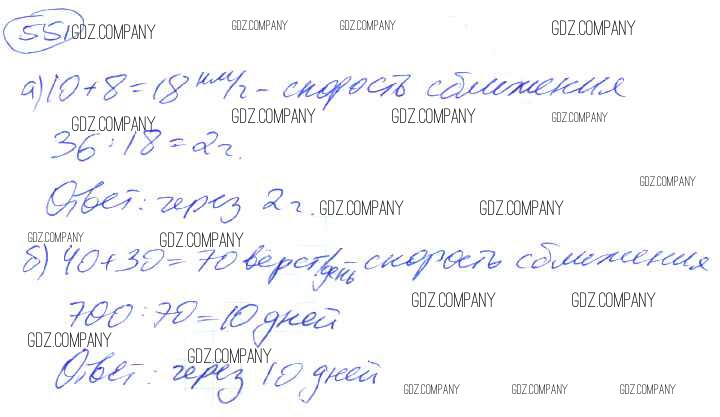 551 GDZ.COMPANY GDZ.COMPANY GDZ.COMPANY GDZ.COMPANY
а) 10 + 8 = 18 км/ч - скорость сближения
GDZ.COMPANY GDZ.COMPANY GDZ.COMPANY GDZ.COMPANY
36 : 18 = 2 ч.
GDZ.COMPANY
Ответ: через 2 ч. GDZ.COMPANY GDZ.COMPANY
GDZ.COMPANY GDZ.COMPANY
б) 40 + 30 = 70 верст/день - скорость сближения
GDZ.COMPANY GDZ.COMPANY
700 : 70 = 10 дней
GDZ.COMPANY GDZ.COMPANY
Ответ: через 10 дней
GDZ.COMPANY GDZ.COMPANY GDZ.COMPANY